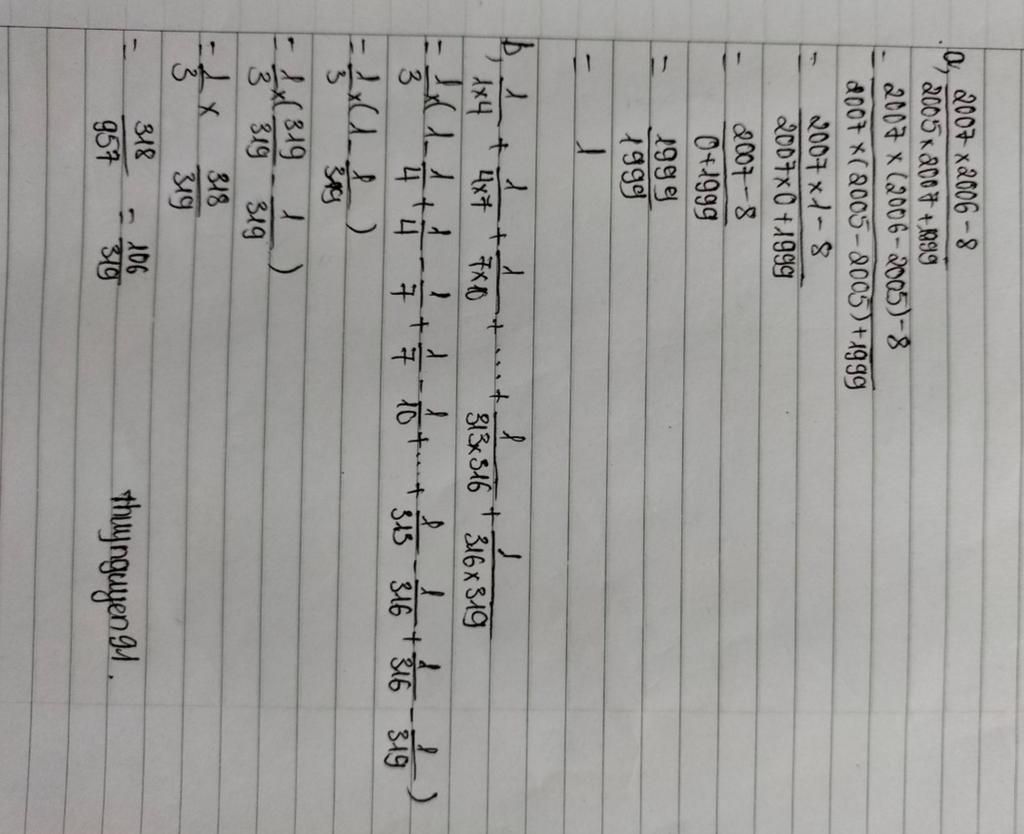 a, 2007 × 2006 - 8 / 2005 × 2007 + 1999
= 2007 × (2006 - 2005) - 8 / 2007 × (2005 - 2005) + 1999
= 2007 × 1 - 8 / 2007 × 0 + 1999
= 2007 - 8 / 0 + 1999
= 1999 / 1999
= 1
b, 1/1×4 + 1/4×7 + 1/7×10 + ... + 1/313×316 + 1/316×319
= 1/3 × (1 - 1/4 + 1/4 - 1/7 + 1/7 - 1/10 + ... + 1/313 - 1/316 + 1/316 - 1/319)
= 1/3 × (1 - 1/319)
= 1/3 × (319/319 - 1/319)
= 1/3 × 318/319
= 318/957 = 106/319
thuynguyen91.